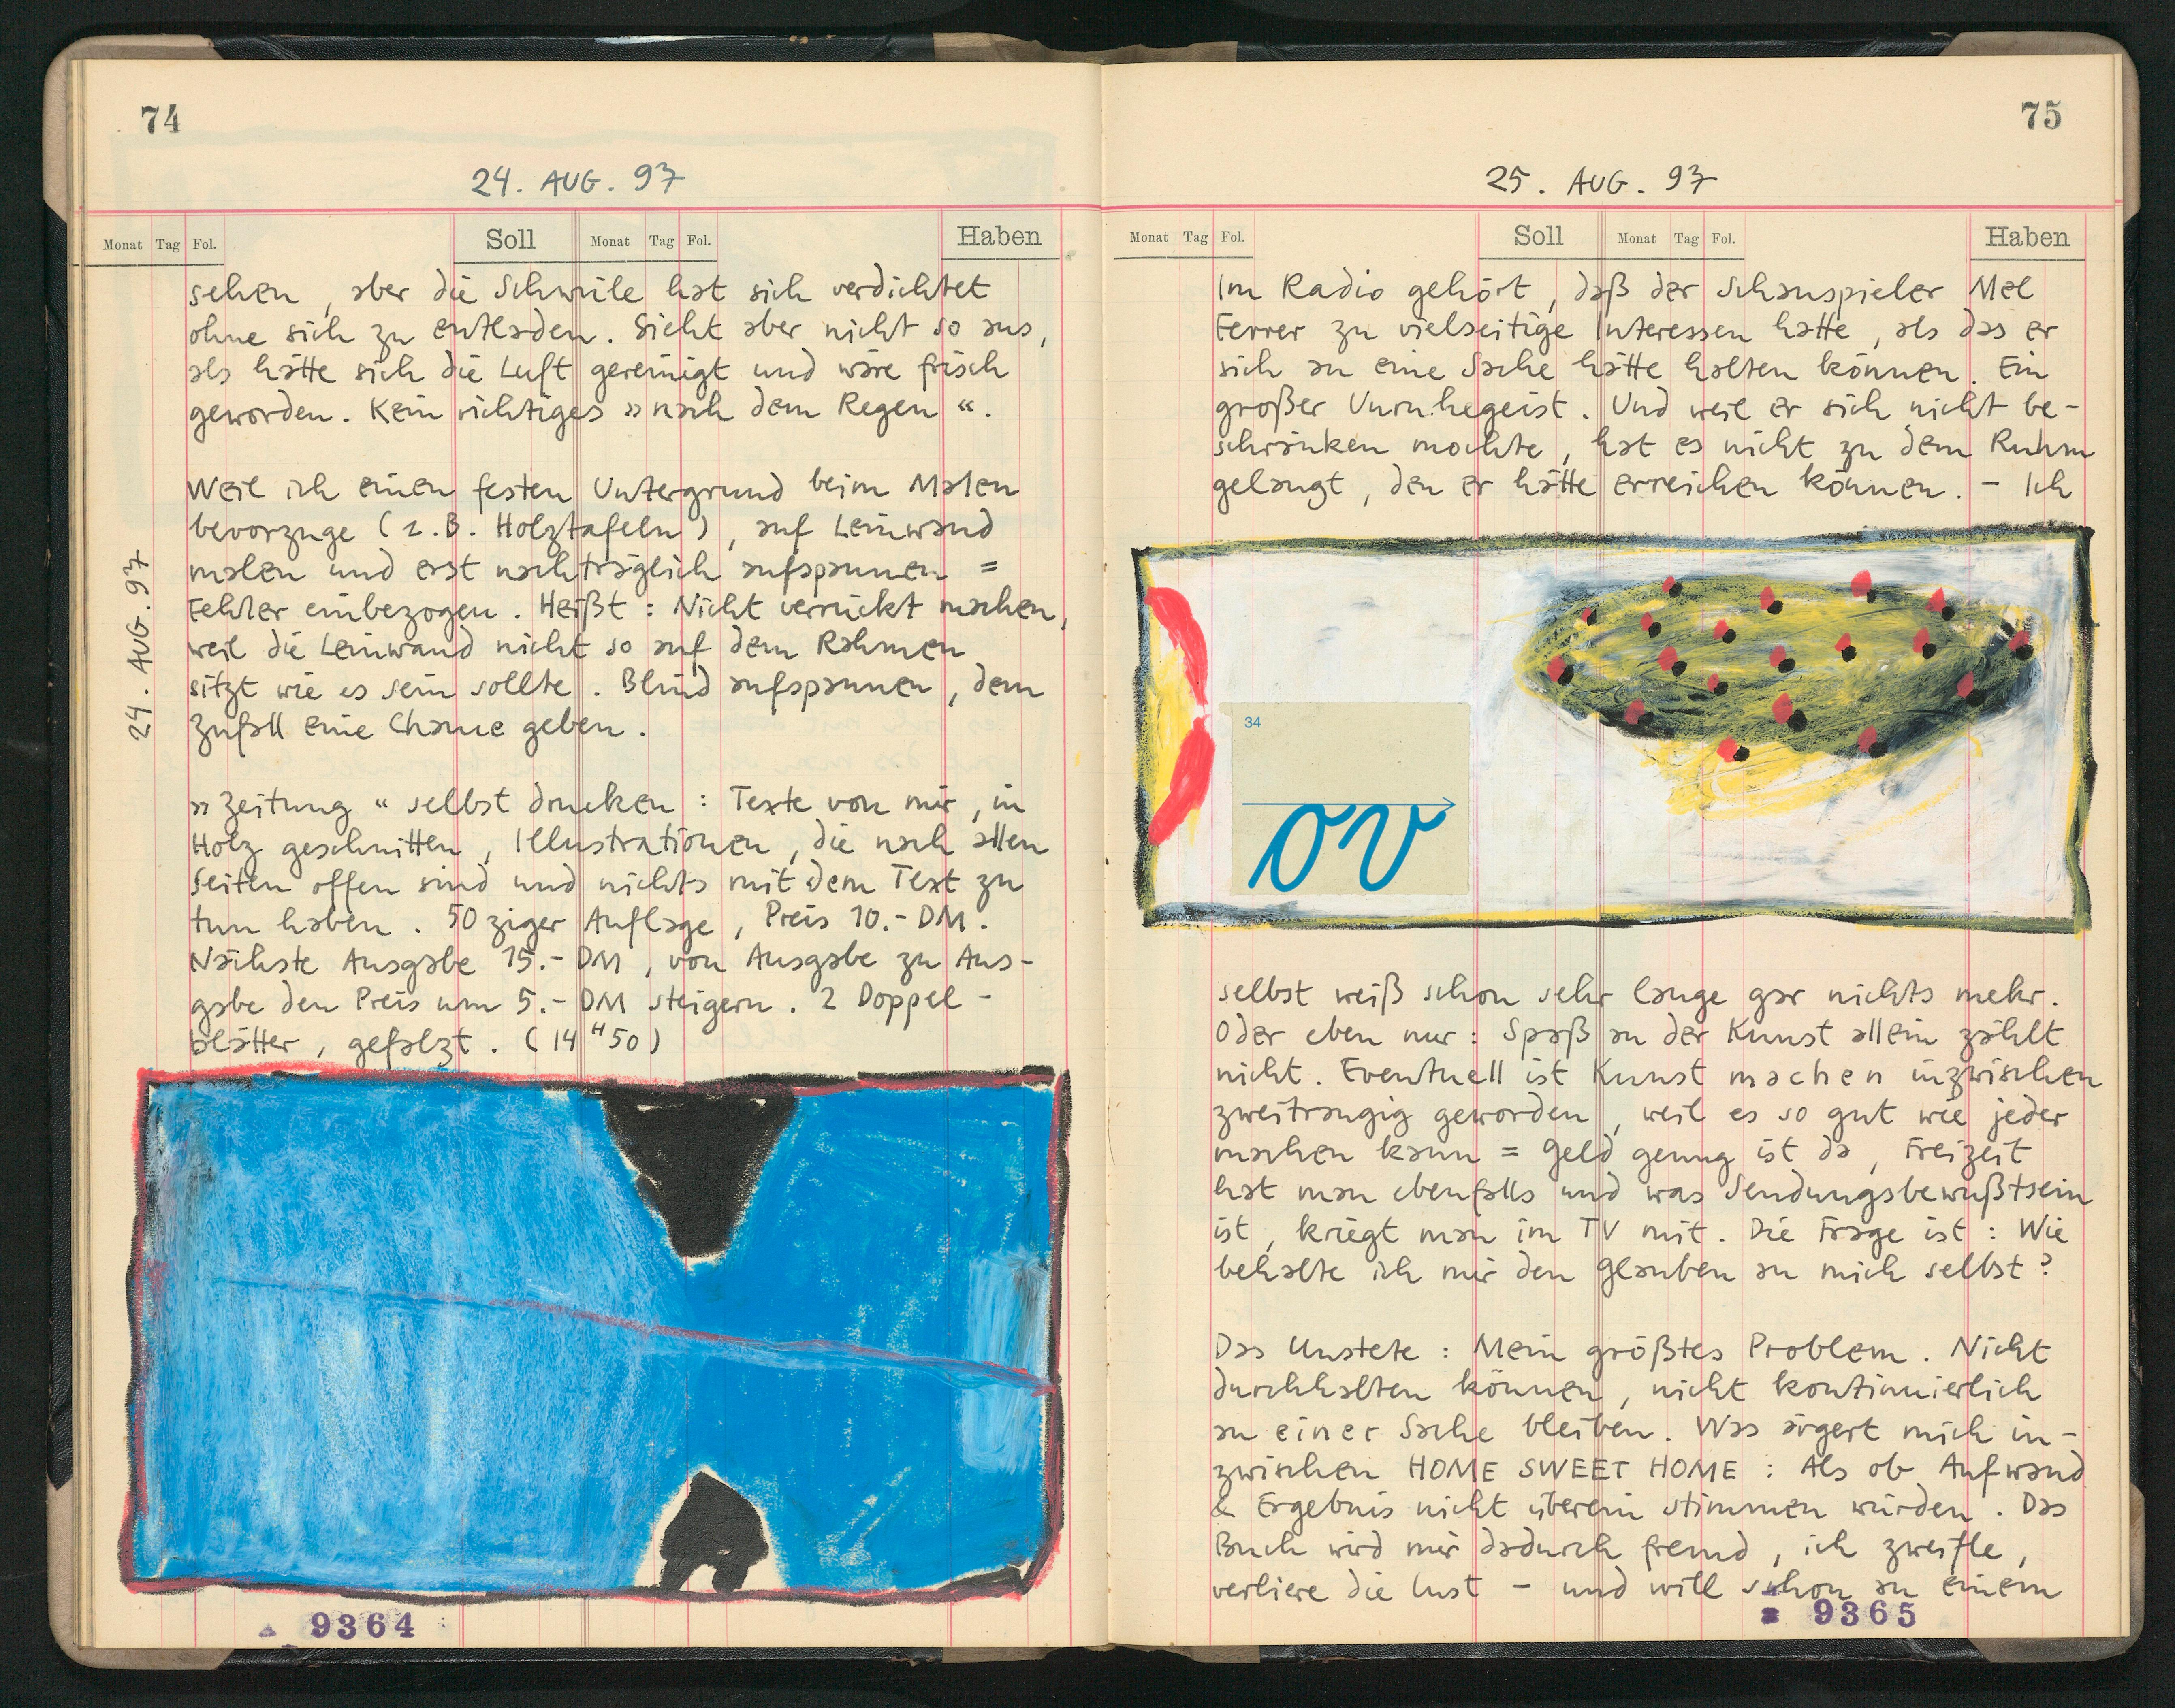 74
24. AUG. 97
Monat Tag Fol. Soll Monat Tag Fol. Haben
sehen, aber die Schwüle hat sich verdichtet
ohne sich zu entladen. Sieht aber nicht so aus,
als hätte sich die Luft gereinigt und wäre frisch
geworden. Kein richtiges »nach dem Regen«.
Weil ich einen festen Untergrund beim Malen
bevorzuge (z.B. Holztafeln), auf Leinwand
malen und erst nachträglich aufspannen =
Fehler einbezogen. Heißt: Nicht verrückt machen,
weil die Leinwand nicht so auf dem Rahmen
sitzt wie es sein sollte. Blind aufspannen, dem
Zufall eine Chance geben.
24. AUG. 97
»Zeitung« selbst drucken: Texte von mir, in
Holz geschnitten, Illustrationen, die nach allen
Seiten offen sind und nichts mit dem Text zu
tun haben. 50ziger Auflage, Preis 10.- DM.
Nächste Ausgabe 15.- DM, von Ausgabe zu Aus-
gabe den Preis um 5.- DM steigern. 2 Doppel-
blätter, gefalzt. (14 H 50)
9364
75
25. AUG. 97
Monat Tag Fol. Soll Monat Tag Fol. Haben
Im Radio gehört, daß der Schauspieler Mel
Ferrer zu vielseitige Interessen hatte, als das er
sich an eine Sache hätte halten können. Ein
großer Unruhegeist. Und weil er sich nicht be-
schränken mochte, hat es nicht zu dem Ruhm
gelangt, den er hätte erreichen können. - Ich
34
ov
selbst weiß schon sehr lange gar nichts mehr.
Oder eben nur: Spaß an der Kunst allein zählt
nicht. Eventuell ist Kunst machen inzwischen
zweitrangig geworden, weil es so gut wie jeder
machen kann = Geld genug ist da, Freizeit
hat man ebenfalls und was Sendungsbewußtsein
ist, kriegt man im TV mit. Die Frage ist: Wie
behalte ich mir den Glauben an mich selbst?
Das Unstete: Mein größtes Problem. Nicht
durchhalten können, nicht kontinuierlich
an einer Sache bleiben. Was ärgert mich in-
zwischen HOME SWEET HOME: Als ob Aufwand
& Ergebnis nicht überein stimmen würden. Das
Buch wird mir dadurch fremd, ich zweifle,
verliere die Lust - und will schon an einem
9365